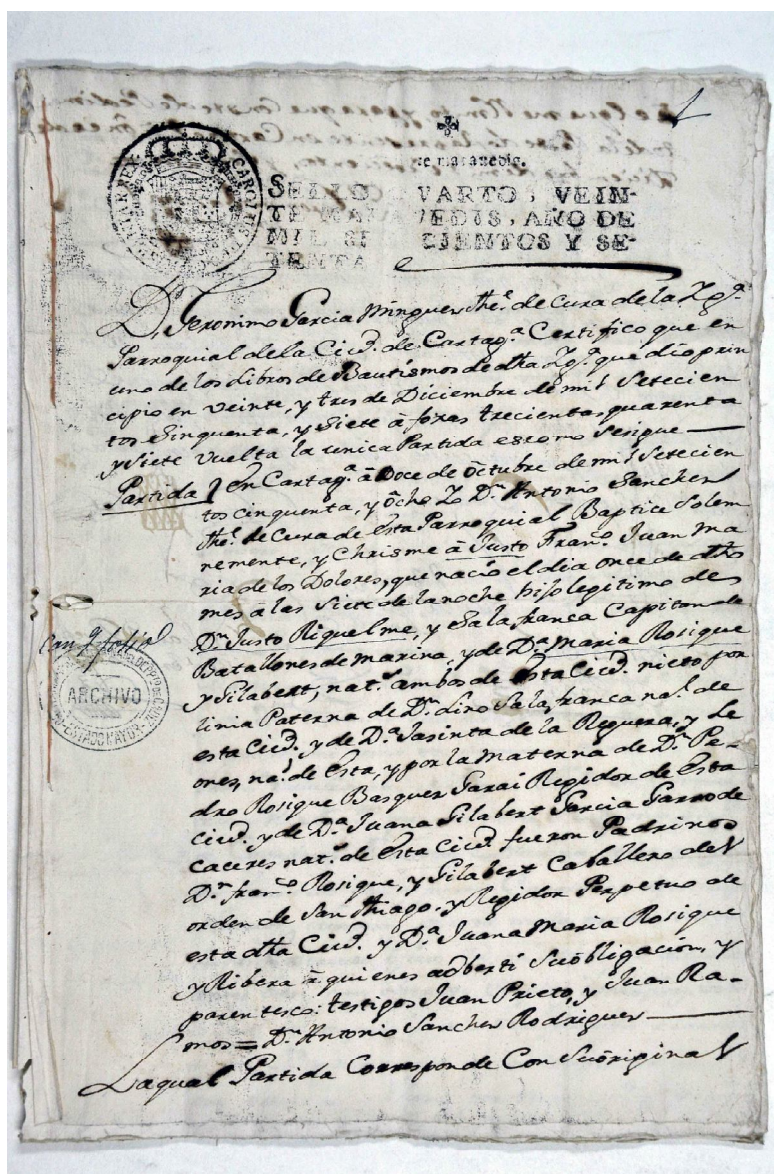 1
te maravedis.
SELLO QVARTO, VEIN-
TE MARAVEDIS, AÑO DE
MIL SETECIENTOS Y SE-
TENTA
D. Geronimo Garcia Minguez the.e de Cura de la Yg.a
Parroquial de la Ciu.d de Cartag.a Certifico que en
uno de los Libros de Bautismos de dha Yg.a que dio prin
cipio en veinte, y tres de Diciembre de mil Setecien
tos Cinquenta, y Siete à foxas trecientas, quarenta
y Siete vuelta la unica Partida es como Sesigue
Partida en Cartag.a à Doce de octubre de mil Setecien
tos cinquenta, y ocho Yo D.n Antonio Sanchez
the.e de cura de esta Parroquial Baptice Solem
nemente, y Chrisme à Justo Fran.co Juan Ma
ria de los Dolores, que nacio el dia once de dho
mes a las Siete de la noche hijo legitimo de
D.n Justo Riquelme, y Salafranca Capitan de
Batallones de Marina, y de D.a Maria Rosique
y Gilabert, nat.s ambos de esta Ciu.d nieto por
linia Paterna de D.n Salafranca na.l de
esta Ciu.d y de D.a Jasinta de la Reguera, y Le
ones, na.l de Esta, y por la Materna de D.n Pe-
dro Rosique Basquez Garai Regidor de Esta
Ciu.d y de D.a Juana Gilabert Garcia Garro de
Caceres nat.s de Esta Ciu.d fueron Padrinos
D.n Fran.co Rosique, y Gilabert Caballero del
orden de San Thiago, y Regidor Perpetuo de
esta dha Ciu.d y D.a Juana Maria Rosique
y Ribera à quienes adberti Su obligacion, y
parentesco: testigos Juan Prieto, y Juan Ra-
mos = D.n Antonio Sanchez Rodriguez
La qual Partida Corresponde Con Su original
ARCHIVO